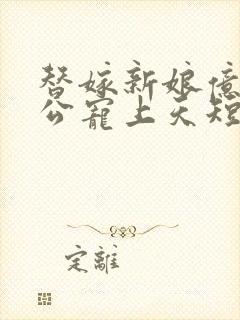 替嫁新娘億
公寵上天短
定離